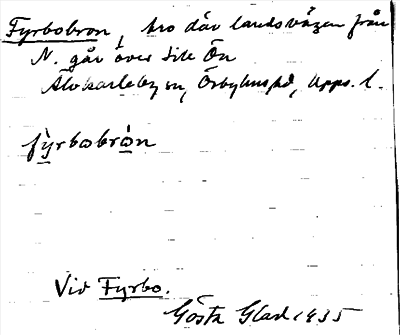 Fyrbobron, bro där landsvägen från
N. går över Lite Ön
Älvkarleby sn, Örbyhus hd, Upps. l.
fy̲rbobrò̲n
Vid Fyrbo.
Gösta Glad 1935